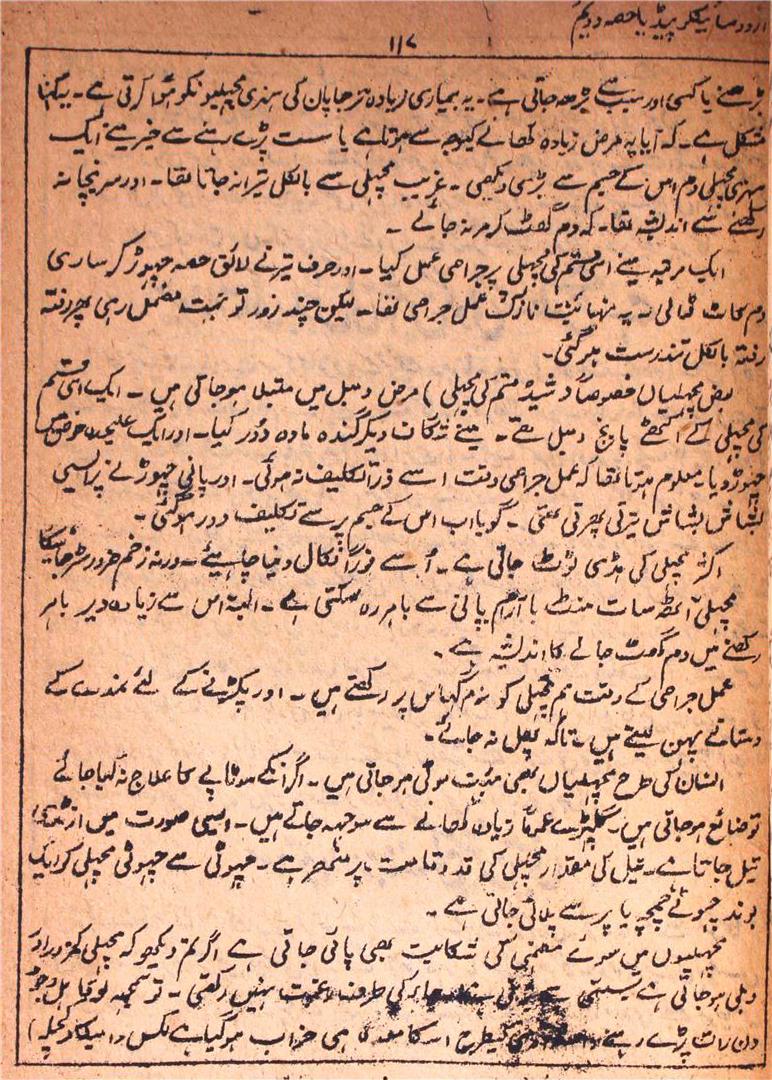 اردو سائیکلوپیڈیا حصہ دوئم
۱۱۷
بڑھنے یا کسی اور سبب سے بڑھ جاتی ہے۔ یہ بیماری زیادہ تر جاپان کی سنہری مچھلیونکو ہوا کرتی ہے۔ یہ کہنا
مشکل ہے۔ کہ آیا یہ مرض زیادہ کھانے کیوجہ سے ہوتا ہے یا سست پڑے رہنے سے خیر مینے ایک
سنہری مچھلی دم اس کے جسم سے بڑی دیکھی۔ غریب مچھلی سے بالکل تیرا نہ جاتا تھا۔ اور سر نیچا نہ
رکھنے سے اندیشہ تھا۔ کہ دم گھٹ کر مر نہ جائے۔
ایک مرتبہ مینے اسی قسم کی مچھلی پر جراحی عمل کیا۔ اور صرف تیرنے لائق حصہ چہوڑ کر ساری
دم کاٹ ڈالی۔ یہ نہائیت نازک عمل جراحی تھا۔ لیکن چند روز تو بہت مضمحل رہی پھر رفتہ
رفتہ بالکل تندرست ہو گئی۔
بعض مچھلیاں خصوصاً (شیڈ قسم کی مچھلی) مرض دمبل میں مبتلا ہو جاتی ہیں۔ ایک اسی قسم
کی مچھلی کے اکٹھے پانچ دمبل تھے۔ مینے شگاف دیکر گندہ مادہ دور کیا۔ اور ایک علیحدہ حوض میں
چہوڑ دیا۔ معلوم ہوتا تھا کہ عمل جراحی وقت اسے ذرا تکلیف نہ ہوئی۔ اور پانی چہوڑنے پر ایسی
بشاش بشاش تیرتی پھرتی تھی۔ گویا اب اس کے جسم پر سے تکلیف دور ہو گئی۔
اکثر مچھلی کی ہڈی ٹوٹ جاتی ہے۔ اُسے فوراً نکال دینا چاہیئے۔ ورنہ زخم ضرور سڑ جائیگا
مچھلی آٹھ سات منٹ با آرام پانی سے باہر رہ سکتی ہے۔ البتہ اس سے زیادہ دیر باہر
رکھنے میں دم گھٹ جانے کا اندیشہ ہے۔
عمل جراحی کے وقت ہم مچھلی کو نرم گھاس پر رکھتے ہیں۔ اور پکڑنے کے لئے نمدے کے
دستانے پہن لیتے ہیں۔ تاکہ پھل نہ جائے۔
انسان کی طرح مچھلیاں بھی بہت موٹی ہو جاتی ہیں۔ اگر انکے موٹاپے کا علاج نہ کیا جائے
تو ضائع ہو جاتی ہیں۔ گلپھڑے عموماً زیادہ کھانے سے سوجھ جاتے ہیں۔ ایسی صورت میں ارنڈی کا
تیل جاتا ہے۔ تیل کی مقدار مچھلی کی قد و قامت پر منحصر ہے۔ چھوٹی سے چھوٹی مچھلی کو ایک
بوند چھوٹے چمچہ یا پر سے پلائی جاتی ہے۔
مچھلیوں میں سوئے ہضمی کی شکایت بھی پائی جاتی ہے اگر تم دیکھو کہ مچھلی کمزور اور
دبلی ہو جاتی ہے سستی سے کی طرف رغبت نہیں رکھتی۔ تو سمجھ لو کہ
دن رات پڑے رہنے کیطرح اسکا معدہ ہی خراب ہو گیا ہے